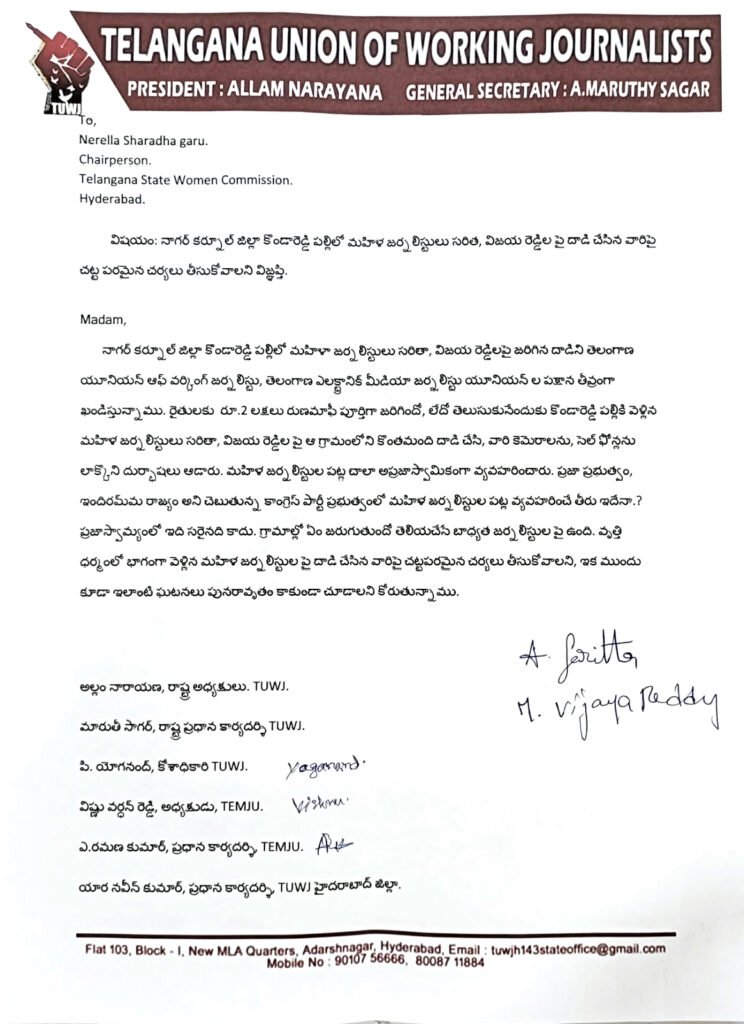 TELANGANA UNION OF WORKING JOURNALISTS
PRESIDENT : ALLAM NARAYANA GENERAL SECRETARY : A.MARUTHY SAGAR
TUWJ
To,
Nerella Sharadha garu.
Chairperson.
Telangana State Women Commission.
Hyderabad.
విషయం: నాగర్ కర్నూల్ జిల్లా కొండారెడ్డి పల్లిలో మహిళ జర్నలిస్టులు సరిత, విజయ రెడ్డిల పై దాడి చేసిన వారిపై
చట్ట పరమైన చర్యలు తీసుకోవాలని విజ్ఞప్తి.
Madam,
నాగర్ కర్నూల్ జిల్లా కొండారెడ్డి పల్లిలో మహిళా జర్నలిస్టులు సరితా, విజయ రెడ్డిలపై జరిగిన దాడిని తెలంగాణ
యూనియన్ ఆఫ్ వర్కింగ్ జర్నలిస్టు, తెలంగాణ ఎలక్ట్రానిక్ మీడియా జర్నలిస్టు యూనియన్ ల పక్షాన తీవ్రంగా
ఖండిస్తున్నాము. రైతులకు రూ.2 లక్షలు రుణమాఫీ పూర్తిగా జరిగిందో, లేదో తెలుసుకునేందుకు కొండారెడ్డి పల్లికి వెళ్లిన
మహిళ జర్నలిస్టులు సరితా, విజయ రెడ్డిల పై ఆ గ్రామంలోని కొంతమంది దాడి చేసి, వారి కెమెరాలను, సెల్ ఫోన్లను
లాక్కొని దుర్భాషలు ఆడారు. మహిళ జర్నలిస్టుల పట్ల చాలా అప్రజాస్వామికంగా వ్యవహరించారు. ప్రజా ప్రభుత్వం,
ఇందిరమ్మ రాజ్యం అని చెబుతున్న కాంగ్రెస్ పార్టీ ప్రభుత్వంలో మహిళ జర్నలిస్టుల పట్ల వ్యవహరించే తీరు ఇదేనా.?
ప్రజాస్వామ్యంలో ఇది సరైనది కాదు. గ్రామాల్లో ఏం జరుగుతుందో తెలియచేసే బాధ్యత జర్నలిస్టుల పై ఉంది. వృత్తి
ధర్మంలో భాగంగా వెళ్లిన మహిళ జర్నలిస్టుల పై దాడి చేసిన వారిపై చట్టపరమైన చర్యలు తీసుకోవాలని, ఇక ముందు
కూడా ఇలాంటి ఘటనలు పునరావృతం కాకుండా చూడాలని కోరుతున్నాము.
A. Saritha
M. Vijaya Reddy
అల్లం నారాయణ, రాష్ట్ర అధ్యక్షులు. TUWJ.
మారుతీ సాగర్, రాష్ట్ర ప్రధాన కార్యదర్శి TUWJ.
పి. యోగనంద్, కోశాధికారి TUWJ. Yoganand.
విష్ణు వర్ధన్ రెడ్డి, అధ్యక్షుడు, TEMJU. Vishnu.
ఎ.రమణ కుమార్, ప్రధాన కార్యదర్శి, TEMJU.
యార నవీన్ కుమార్, ప్రధాన కార్యదర్శి, TUWJ హైదరాబాద్ జిల్లా.
Flat 103, Block - I, New MLA Quarters, Adarshnagar, Hyderabad, Email : tuwjh143stateoffice@gmail.com
Mobile No : 90107 56666, 80087 11884